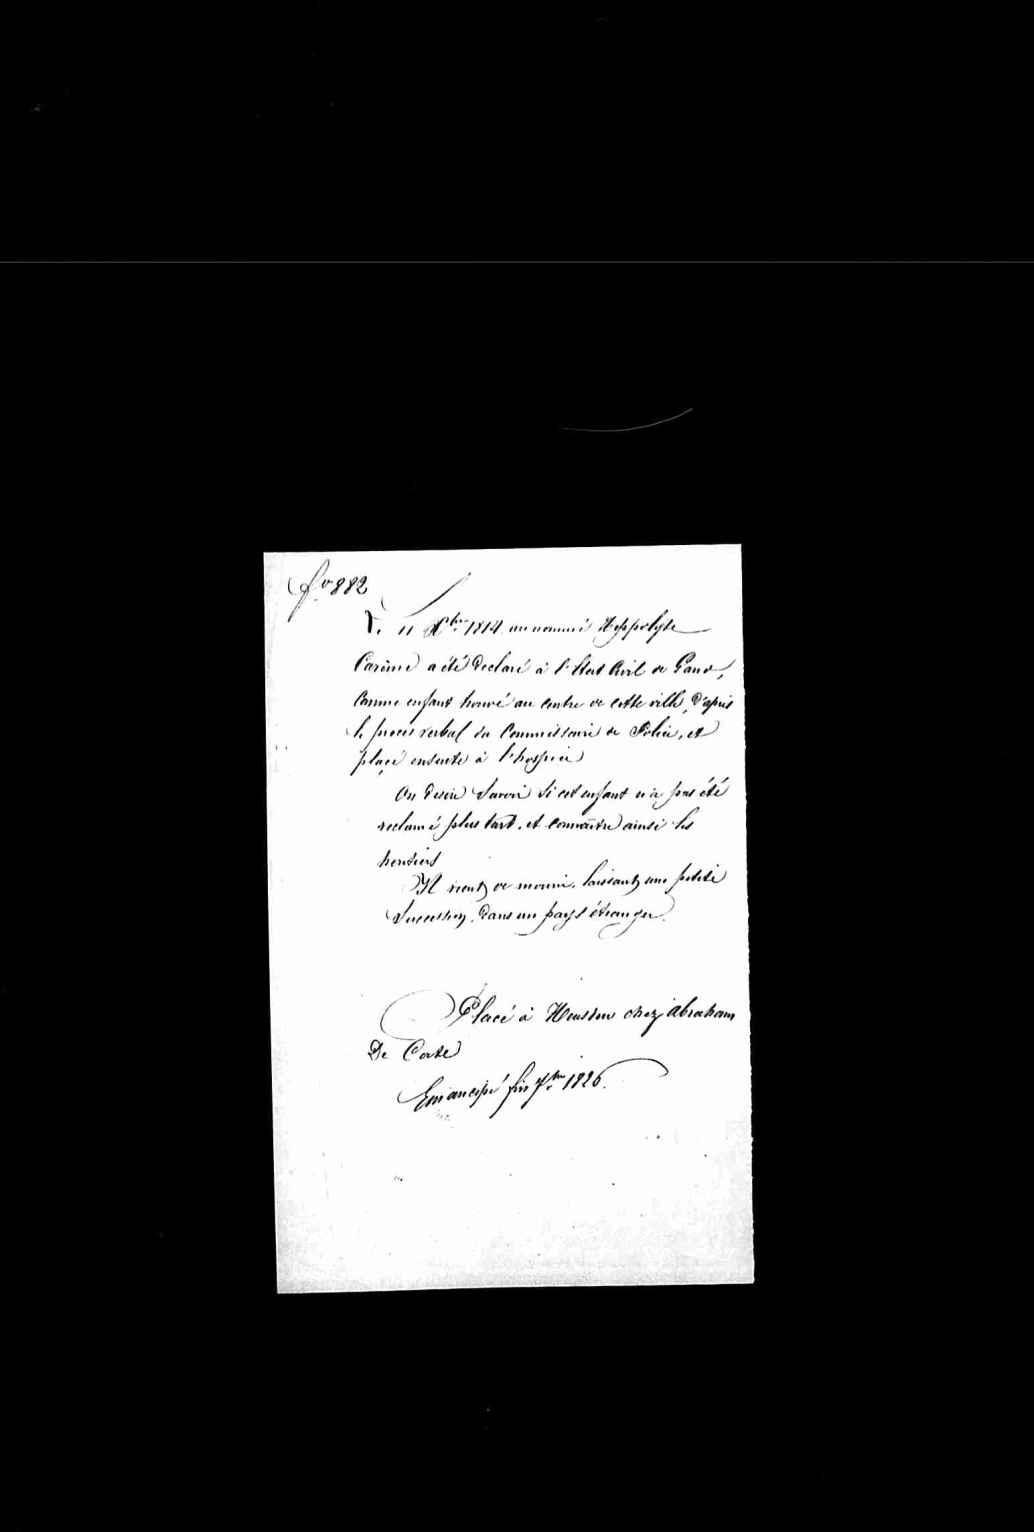 fo 882
Le 11 Xbre 1814 un nommé Hyppolyte
Carême a été declaré à l'Etat Civil de Gand,
comme enfant trouvé au centre de cette ville, d'après
le procès verbal du Commissaire de Police, et
placé ensuite à l'hospice
On desire savoir si cet enfant n'a pas été
reclamé plus tard, et connaître ainsi les
heritiers
Il vient de mourir, laissant une petite
succession, dans un pays étranger.
Placé à Heusden chez Abraham
De Corte
Emancipé fin 7bre 1826.